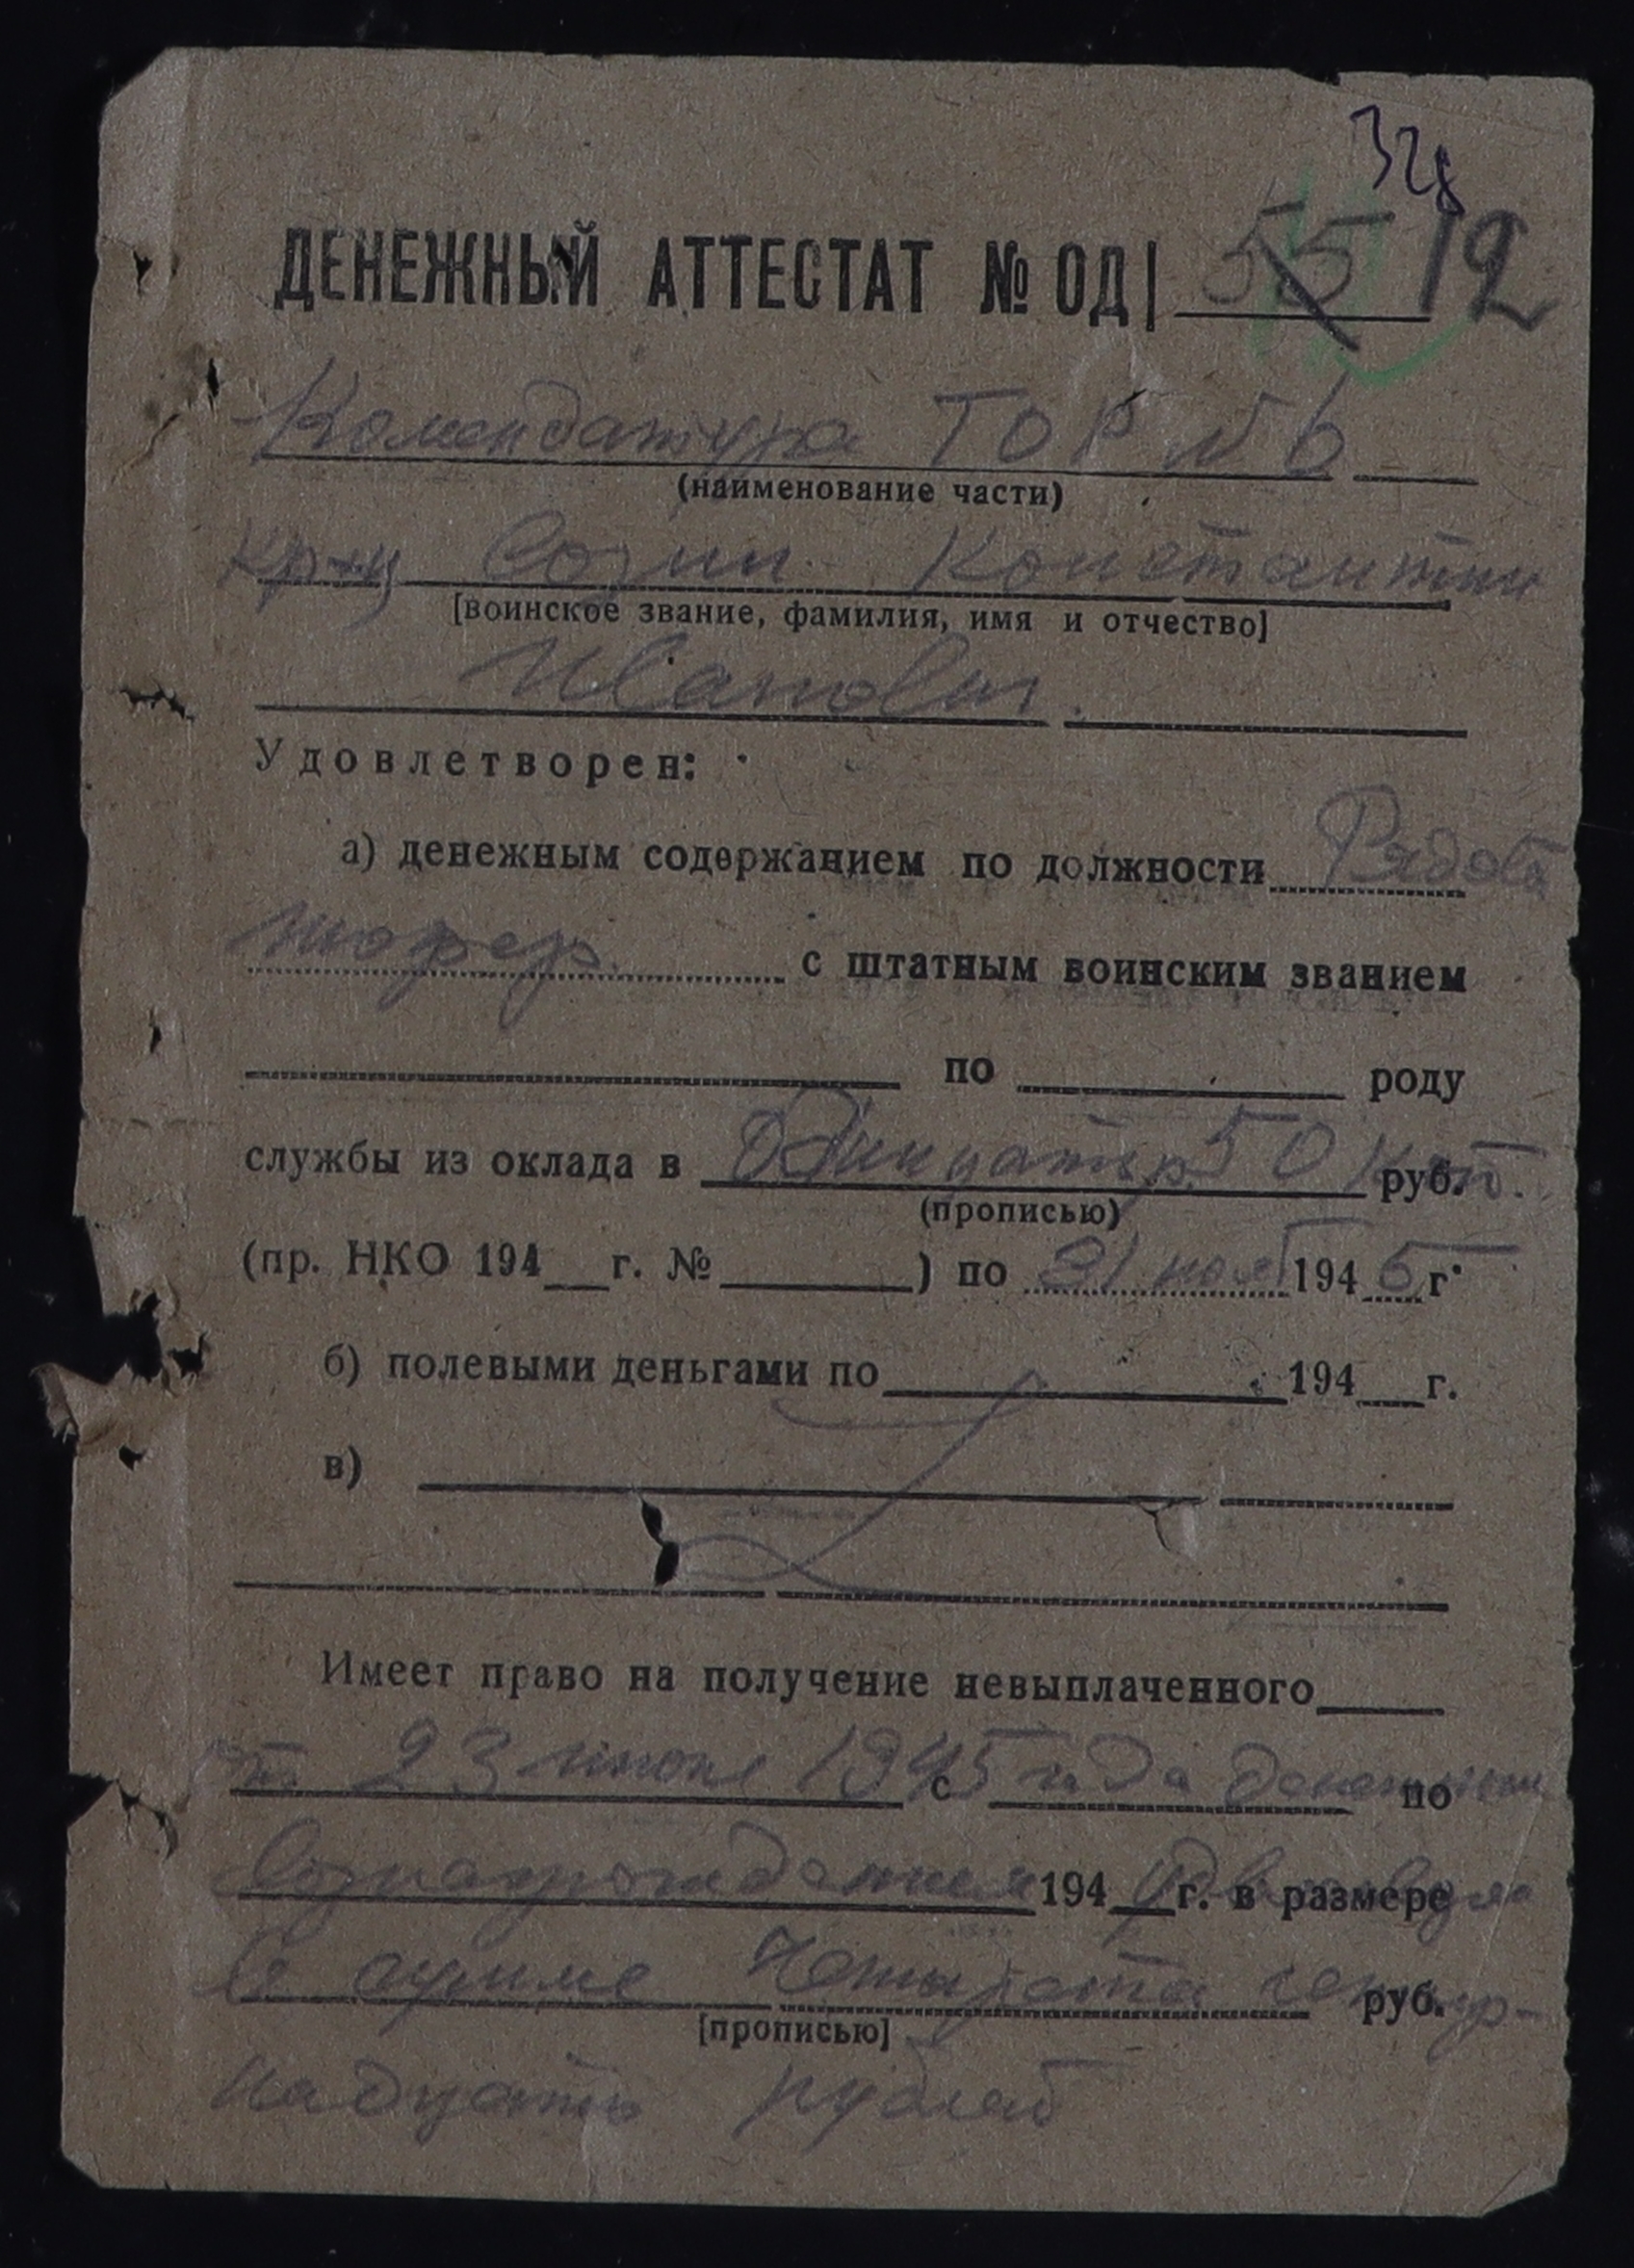 ДЕНЕЖНЫЙ АТТЕСТАТ № ОД| 55 12
Комендатура ТОР № 6
(наименование части)
Кр-ц Созин Константин
[воинское звание, фамилия, имя и отчество]
Иванович.
Удовлетворен:
а) денежным содержанием по должности Рядов
шофер. с штатным воинским званием
по роду
службы из оклада в Одинцать р. 50 коп. руб.
(прописью)
(пр. НКО 194 г. № ) по 31 нояб 194 5 г.
б) полевыми деньгами по 194 г.
в)
Имеет право на получение невыплаченного
23 1945 года с по
вознаграждения 194 г. в размере
в сумме Четыреста четыр- руб.
[прописью]
надцать рублей